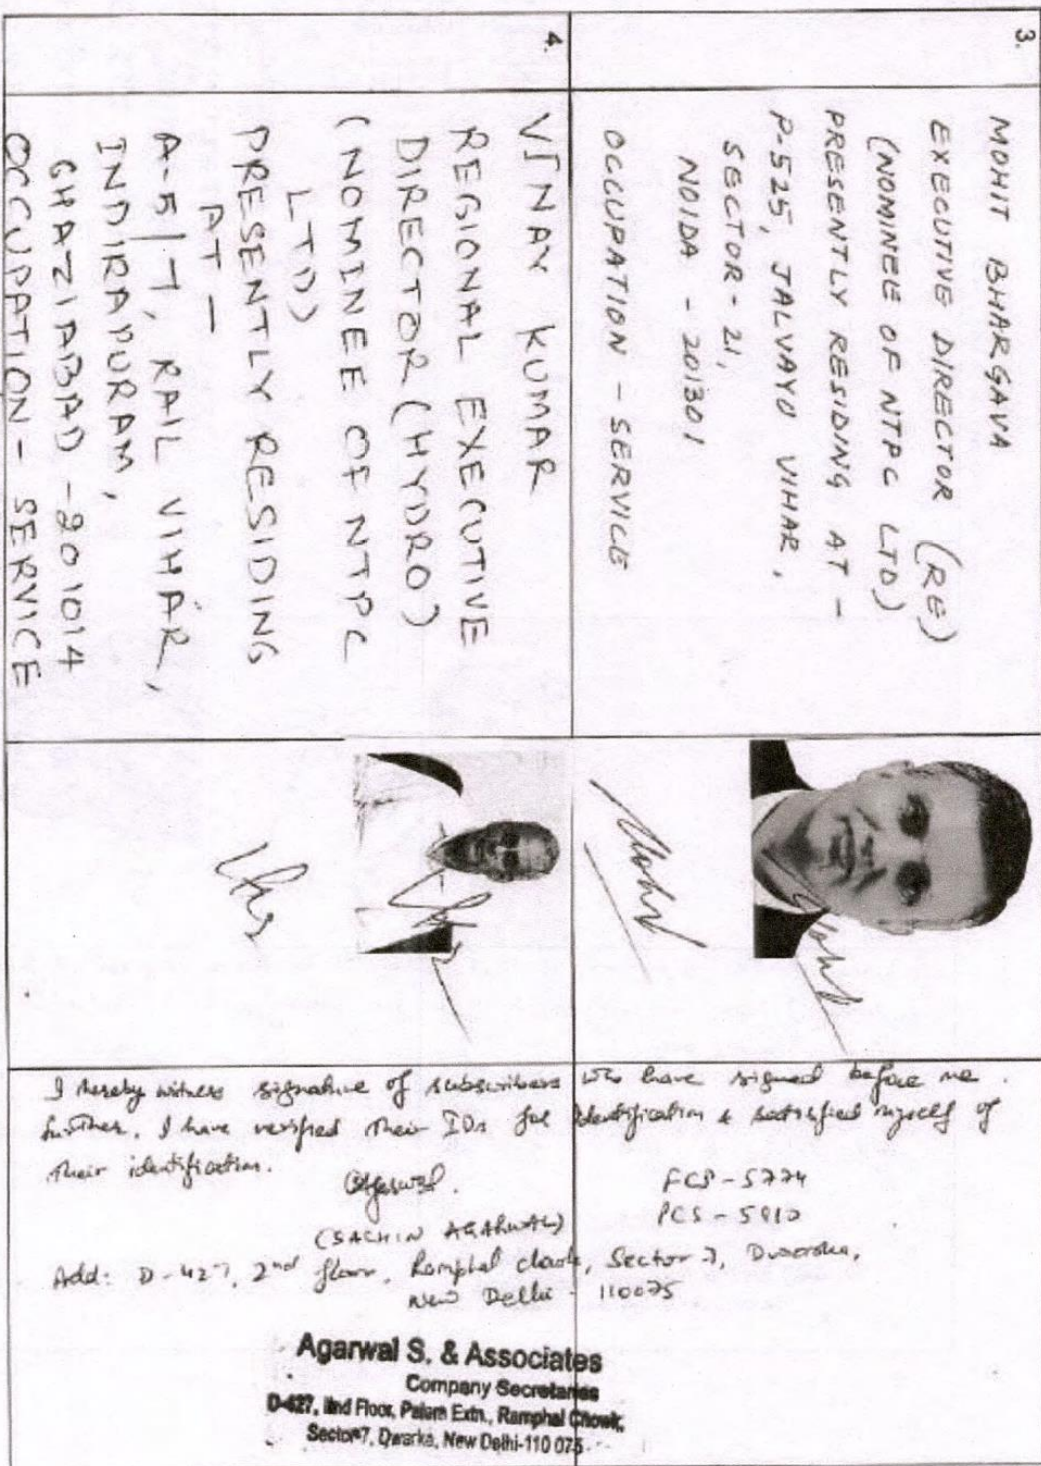 3.
MOHIT BHARGAVA
EXECUTIVE DIRECTOR (RE)
(NOMINEE OF NTPC LTD)
PRESENTLY RESIDING AT -
P-525, JALVAYU VIHAR,
SECTOR-21,
NOIDA - 201301
OCCUPATION - SERVICE
4.
VINAY KUMAR
REGIONAL EXECUTIVE
DIRECTOR (HYDRO)
(NOMINEE OF NTPC
LTD)
PRESENTLY RESIDING
AT -
A-5/7, RAIL VIHAR,
INDIRAPURAM,
GHAZIABAD - 201014
OCCUPATION - SERVICE
I hereby witness signature of subscribers who have signed before me.
further, I have verified their IDs for identification & satisfied myself of
their identification.
(SACHIN AGARWAL)
FCS - 5774
PCS - 5910
Add: D-427, 2nd floor, Ramphal chowk, Sector 7, Dwarka,
New Delhi - 110075
Agarwal S. & Associates
Company Secretaries
D-427, IInd Floor, Palam Extn., Ramphal Chowk,
Sector-7, Dwarka, New Delhi-110 075